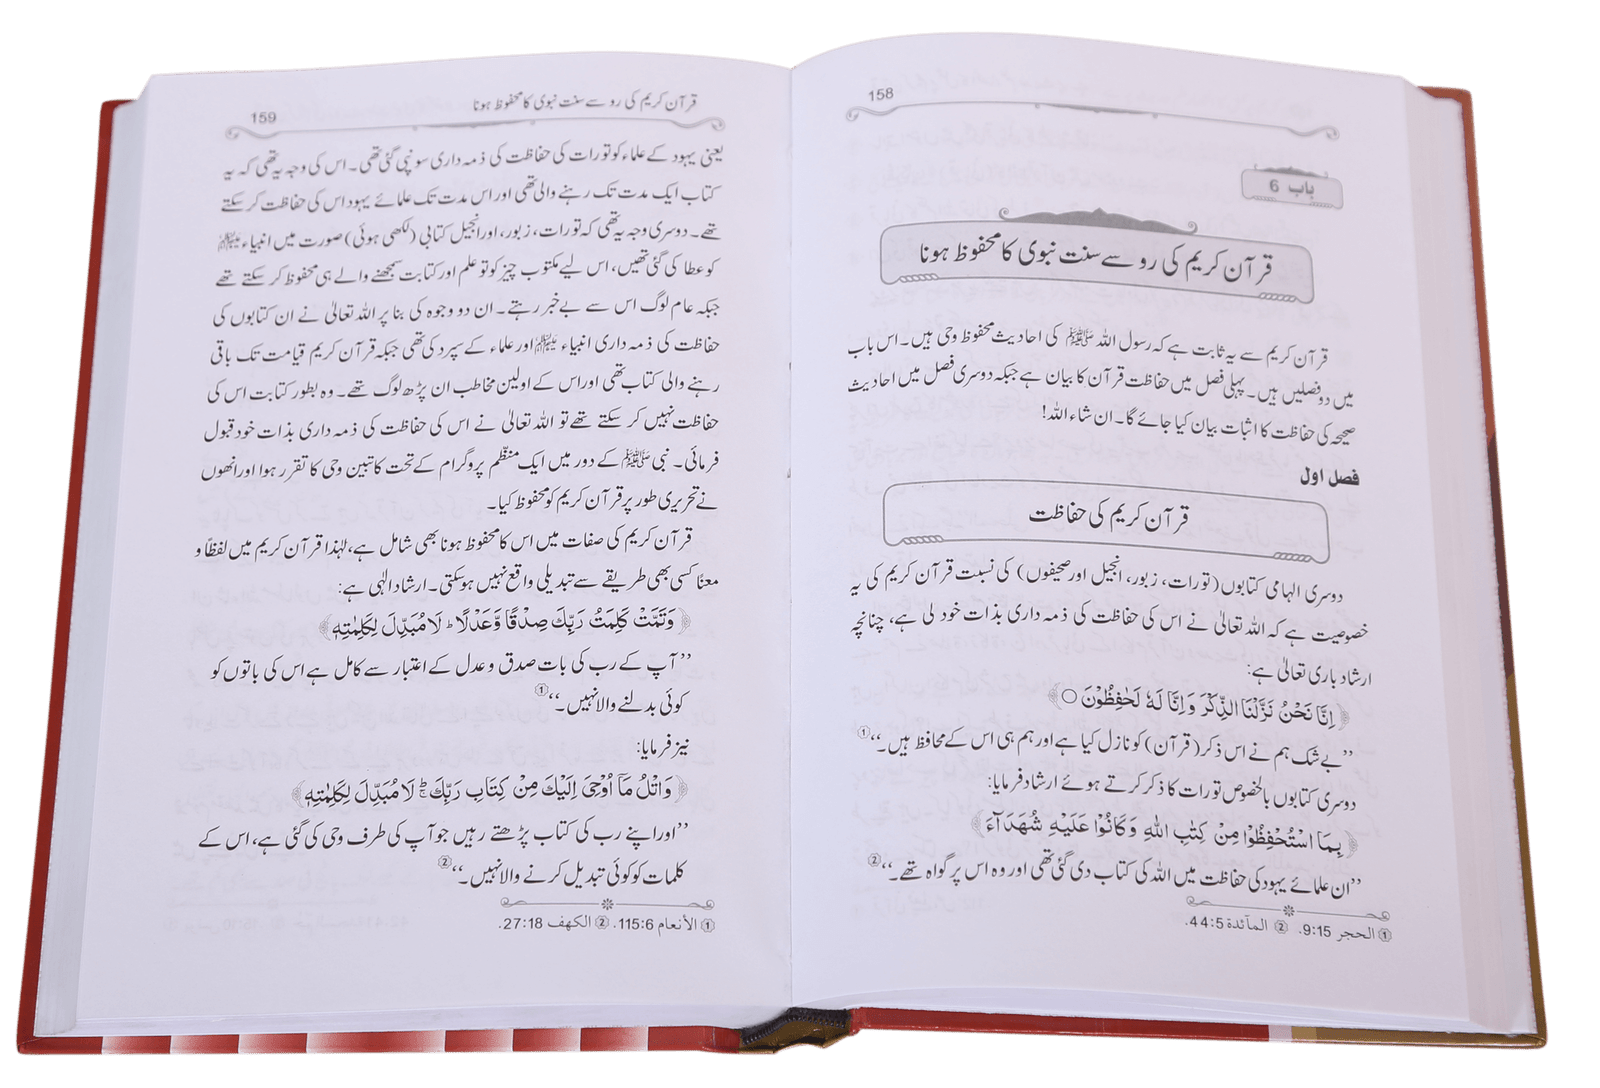 158
باب 6
قرآن کریم کی رو سے سنت نبوی کا محفوظ ہونا
قرآن کریم سے یہ ثابت ہے کہ رسول اللہ ﷺ کی احادیث محفوظ وحی ہیں۔ اس باب
میں دو فصلیں ہیں۔ پہلی فصل میں حفاظت قرآن کا بیان ہے جبکہ دوسری فصل میں احادیث
صحیحہ کی حفاظت کا اثبات بیان کیا جائے گا۔ ان شاء اللہ!
فصل اول
قرآن کریم کی حفاظت
دوسری الہامی کتابوں (تورات، زبور، انجیل اور صحیفوں) کی نسبت قرآن کریم کی یہ
خصوصیت ہے کہ اللہ تعالیٰ نے اس کی حفاظت کی ذمہ داری بذات خود لی ہے، چنانچہ
ارشاد باری تعالیٰ ہے:
﴿اِنَّا نَحْنُ نَزَّلْنَا الذِّكْرَ وَاِنَّا لَهٗ لَحٰفِظُوْنَ ○﴾
’’بے شک ہم نے اس ذکر (قرآن) کو نازل کیا ہے اور ہم ہی اس کے محافظ ہیں۔‘‘①
دوسری کتابوں بالخصوص تورات کا ذکر کرتے ہوئے ارشاد فرمایا:
﴿بِمَا اسْتُحْفِظُوْا مِنْ كِتٰبِ اللّٰهِ وَكَانُوْا عَلَيْهِ شُهَدَآءَ﴾
’’ان علمائے یہود کی حفاظت میں اللہ کی کتاب دی گئی تھی اور وہ اس پر گواہ تھے۔‘‘②
① الحجر 9:15. ② المآئدة 44:5.
قرآن کریم کی رو سے سنت نبوی کا محفوظ ہونا 159
یعنی یہود کے علماء کو تورات کی حفاظت کی ذمہ داری سونپی گئی تھی۔ اس کی وجہ یہ تھی کہ یہ
کتاب ایک مدت تک رہنے والی تھی اور اس مدت تک علمائے یہود اس کی حفاظت کر سکتے
تھے۔ دوسری وجہ یہ تھی کہ تورات، زبور، اور انجیل کتابی (لکھی ہوئی) صورت میں انبیاء
کو عطا کی گئی تھیں، اس لیے مکتوب چیز کو تو علم اور کتابت سمجھنے والے ہی محفوظ کر سکتے تھے
جبکہ عام لوگ اس سے بے خبر رہتے۔ ان دو وجوہ کی بنا پر اللہ تعالیٰ نے ان کتابوں کی
حفاظت کی ذمہ داری انبیاء اور علماء کے سپرد کی تھی جبکہ قرآن کریم قیامت تک باقی
رہنے والی کتاب تھی اور اس کے اولین مخاطب ان پڑھ لوگ تھے۔ وہ بطور کتابت اس کی
حفاظت نہیں کر سکتے تھے تو اللہ تعالیٰ نے اس کی حفاظت کی ذمہ داری بذات خود قبول
فرمائی۔ نبی ﷺ کے دور میں ایک منظّم پروگرام کے تحت کاتبین وحی کا تقرر ہوا اور انھوں
نے تحریری طور پر قرآن کریم کو محفوظ کیا۔
قرآن کریم کی صفات میں اس کا محفوظ ہونا بھی شامل ہے، لہٰذا قرآن کریم میں لفظاً و
معناً کسی بھی طریقے سے تبدیلی واقع نہیں ہو سکتی۔ ارشاد الٰہی ہے:
﴿وَتَمَّتْ كَلِمَتُ رَبِّكَ صِدْقًا وَّعَدْلًا ؕ لَا مُبَدِّلَ لِكَلِمٰتِهٖ﴾
’’آپ کے رب کی بات صدق و عدل کے اعتبار سے کامل ہے اس کی باتوں کو
کوئی بدلنے والا نہیں۔‘‘①
نیز فرمایا:
﴿وَاتْلُ مَآ اُوْحِيَ اِلَيْكَ مِنْ كِتَابِ رَبِّكَ ۚؕ لَا مُبَدِّلَ لِكَلِمٰتِهٖ﴾
’’اور اپنے رب کی کتاب پڑھتے رہیں جو آپ کی طرف وحی کی گئی ہے، اس کے
کلمات کو کوئی تبدیل کرنے والا نہیں۔‘‘②
① الأنعام 115:6. ② الكهف 27:18.